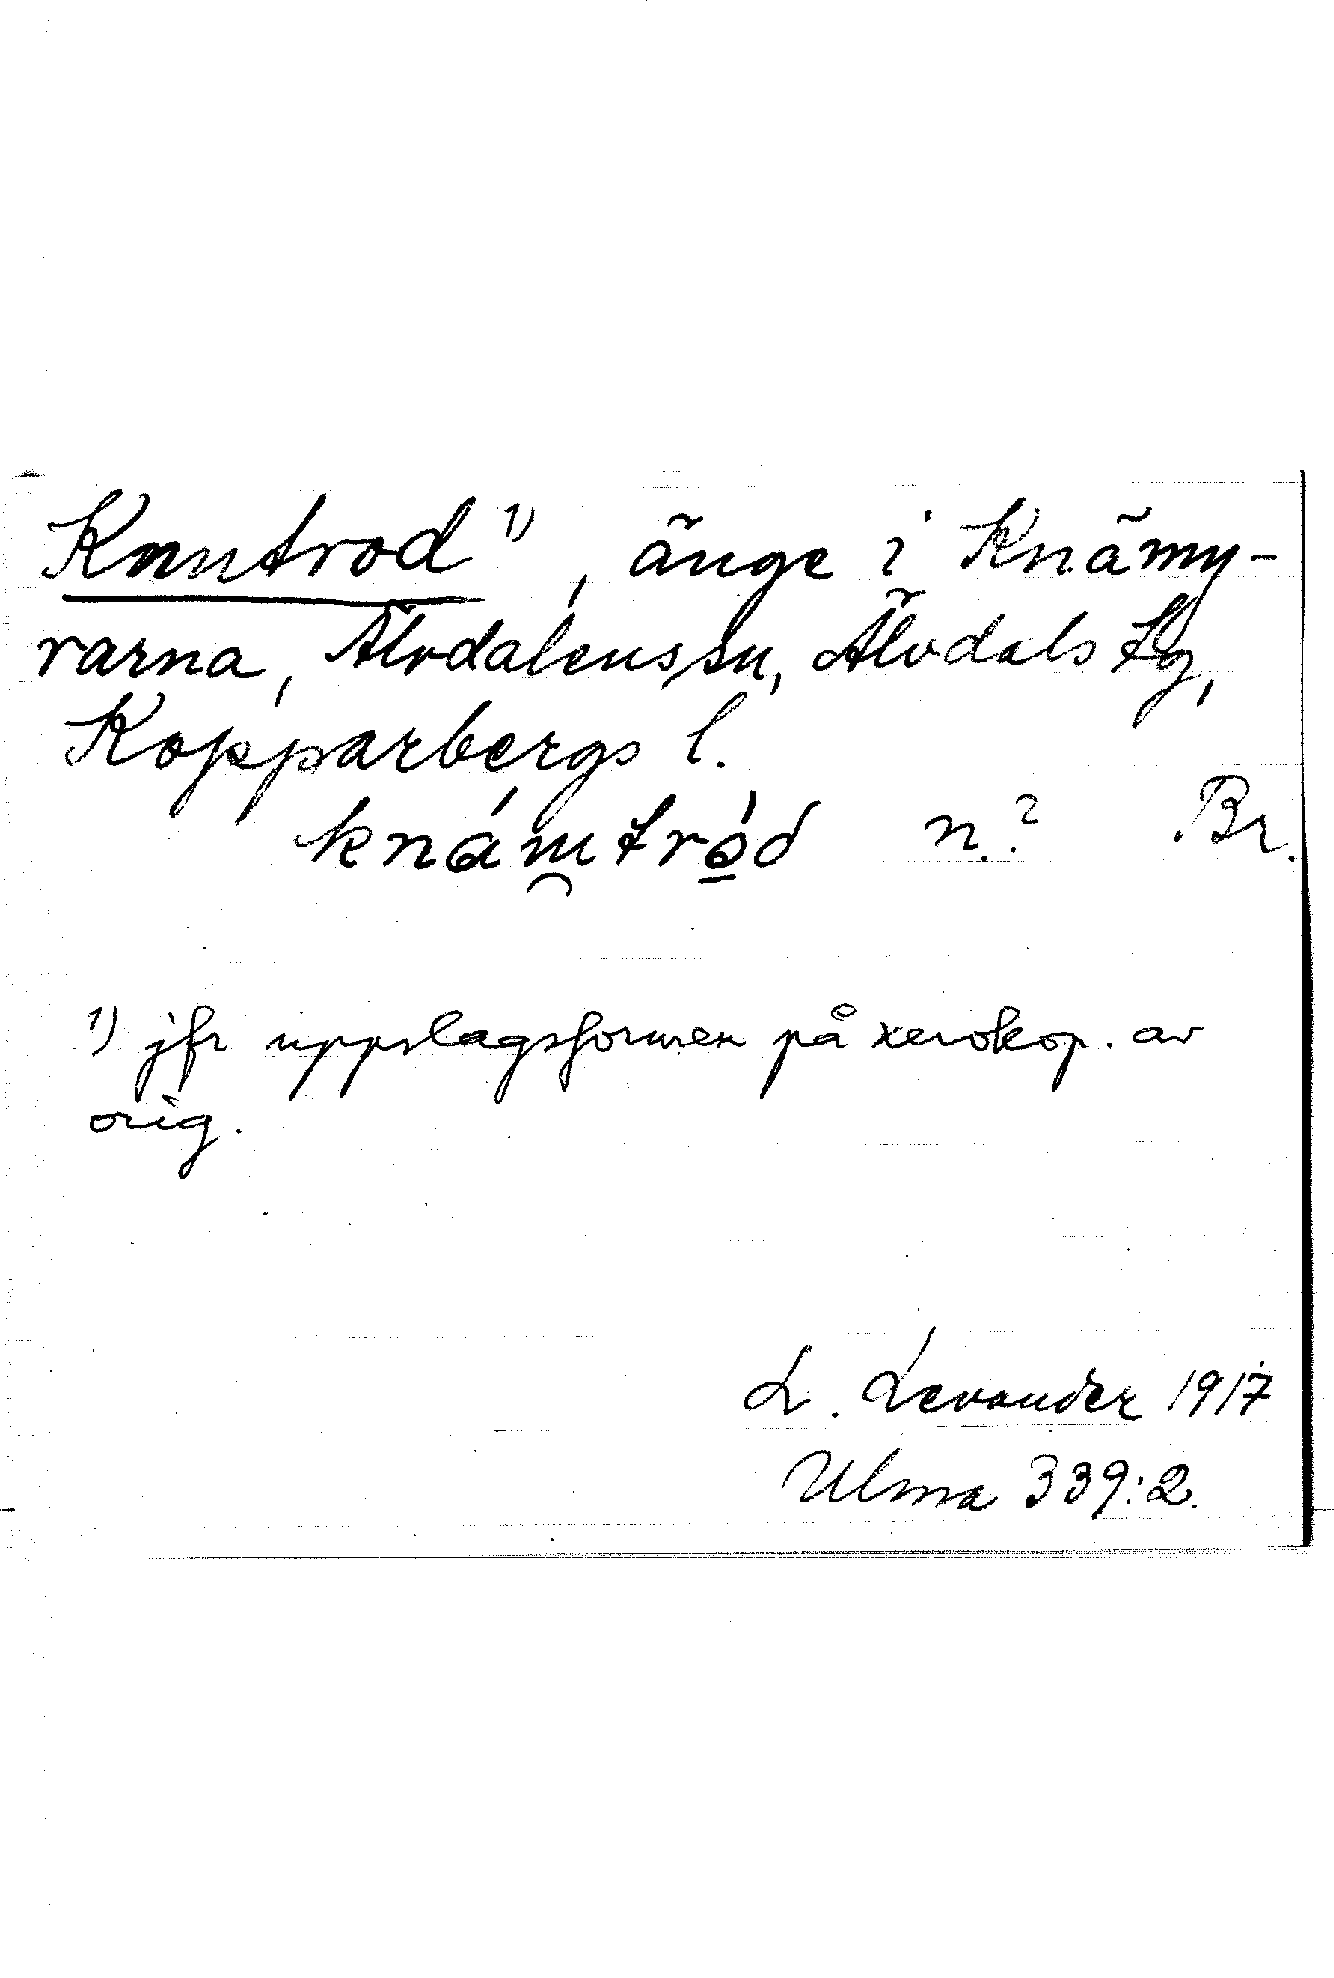 Knutrod ¹⁾, änge i Knämy-
rarna, Älvdalens sn, Älvdals tg,
Kopparbergs l.
knámtród n.? Br.
¹⁾ jfr uppslagsformen på xerokop. av
orig.
L. Levander 1917
Ulma 339:2.